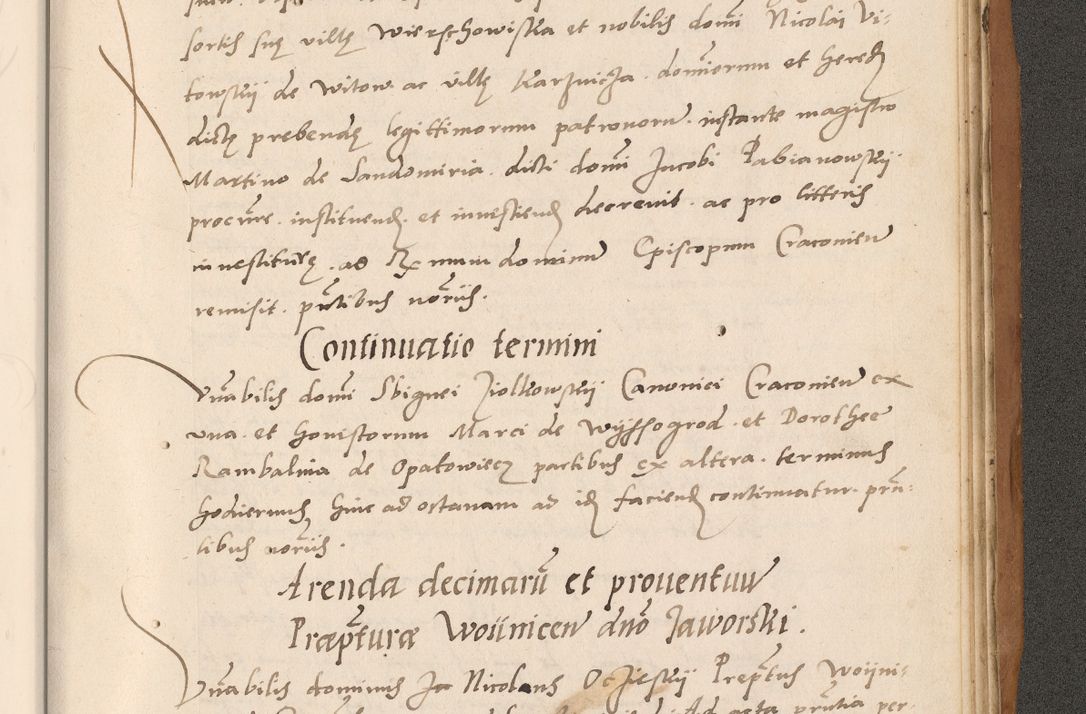 sortis suę villę Wierschowiska et nobilis domi Nicolai Vi-
towskij de Witow ac villę Karznicza dominorum et hered
dictę prebendę legittimorum patronoru instante magistro
Martino de Sandomiria dicti domi Jacobi Pabianowskij
procure instituend et inuestiend decreuit ac pro litteris
inuestiturę ad Rmum dominu Episcopum Cracovien
remisit pntibus notriis.
Continuatio termini
Vnabilis domi Sbignei Ziolkowskij Canonici Cracovien ex
vna et honestorum Marci de Wyssogrod et Dorothee
Rambalina de Opatowiecz partibus ex altera terminus
hodiernus hinc ad octauam ad id faciend continuatur prn-
tibus notriis.
Arenda decimaru et prouentuu
Præpturæ Woiinicen dno Jaworski.
Vnabilis dominus Nicolaus Oczieskij Preptus Woijni-
Ad acta prntia per-